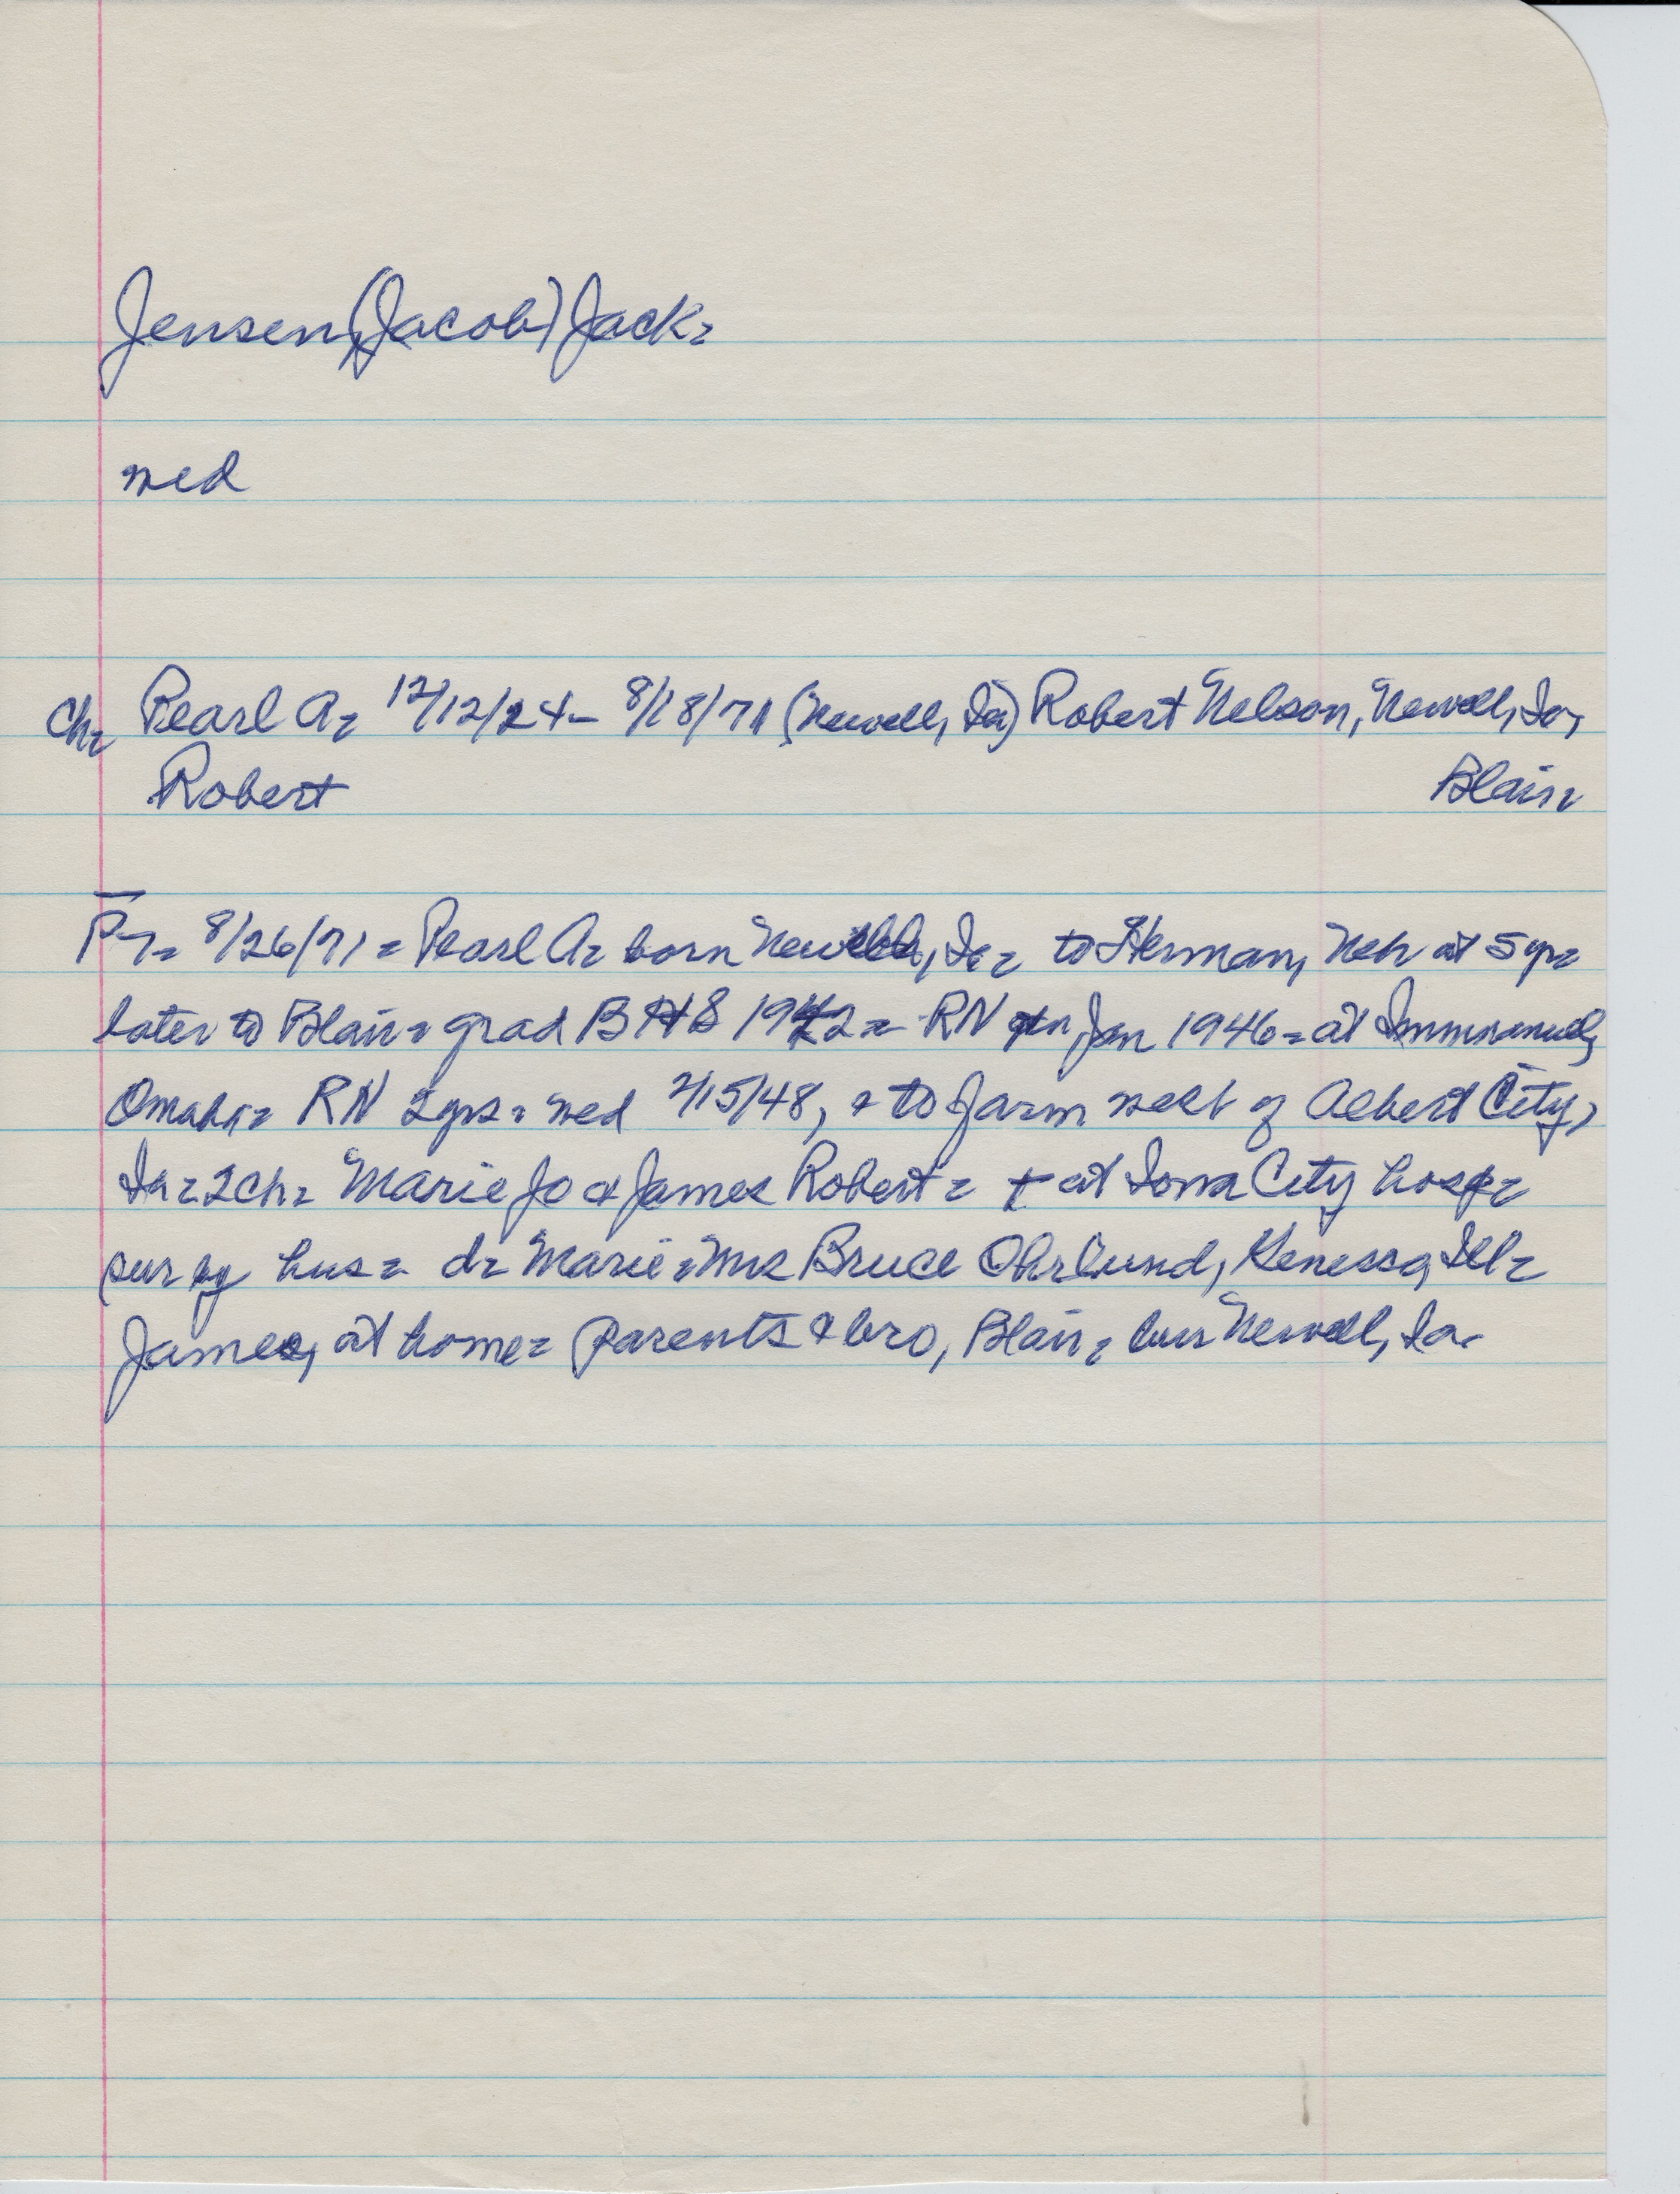 Jensen, (Jacob) Jack =
wed
Ch = Pearl A = 12/12/24 - 8/18/71 (Newell, Ia) Robert Nelson, Newell, Ia,
Robert Blair =
P-T = 8/26/71 = Pearl A = born Newell, Ia = to Herman, Neb at 5 yr =
later to Blair = grad BHS 1942 = RN in Jan 1946 = at Immanuel,
Omaha = RN 2 yrs = wed 2/15/48, = to farm west of Albert City,
Ia = 2 ch = Marie Jo & James Robert = + at Iowa City hosp =
sur by hus = d = Marie = Mrs Bruce Ohrlund, Ill =
James, at home = parents & bro, Blair = bur Newell, Ia.